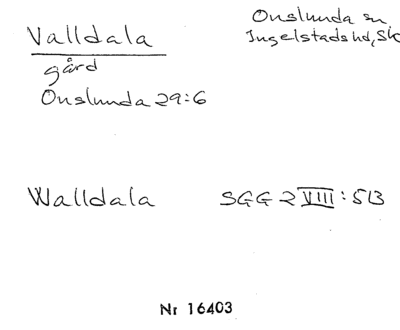 Valldala
gård
Onslunda 29:6
Onslunda sn
Ingelstads hd, Sk
Walldala SGG 2 VIII: 513
Nr 16403